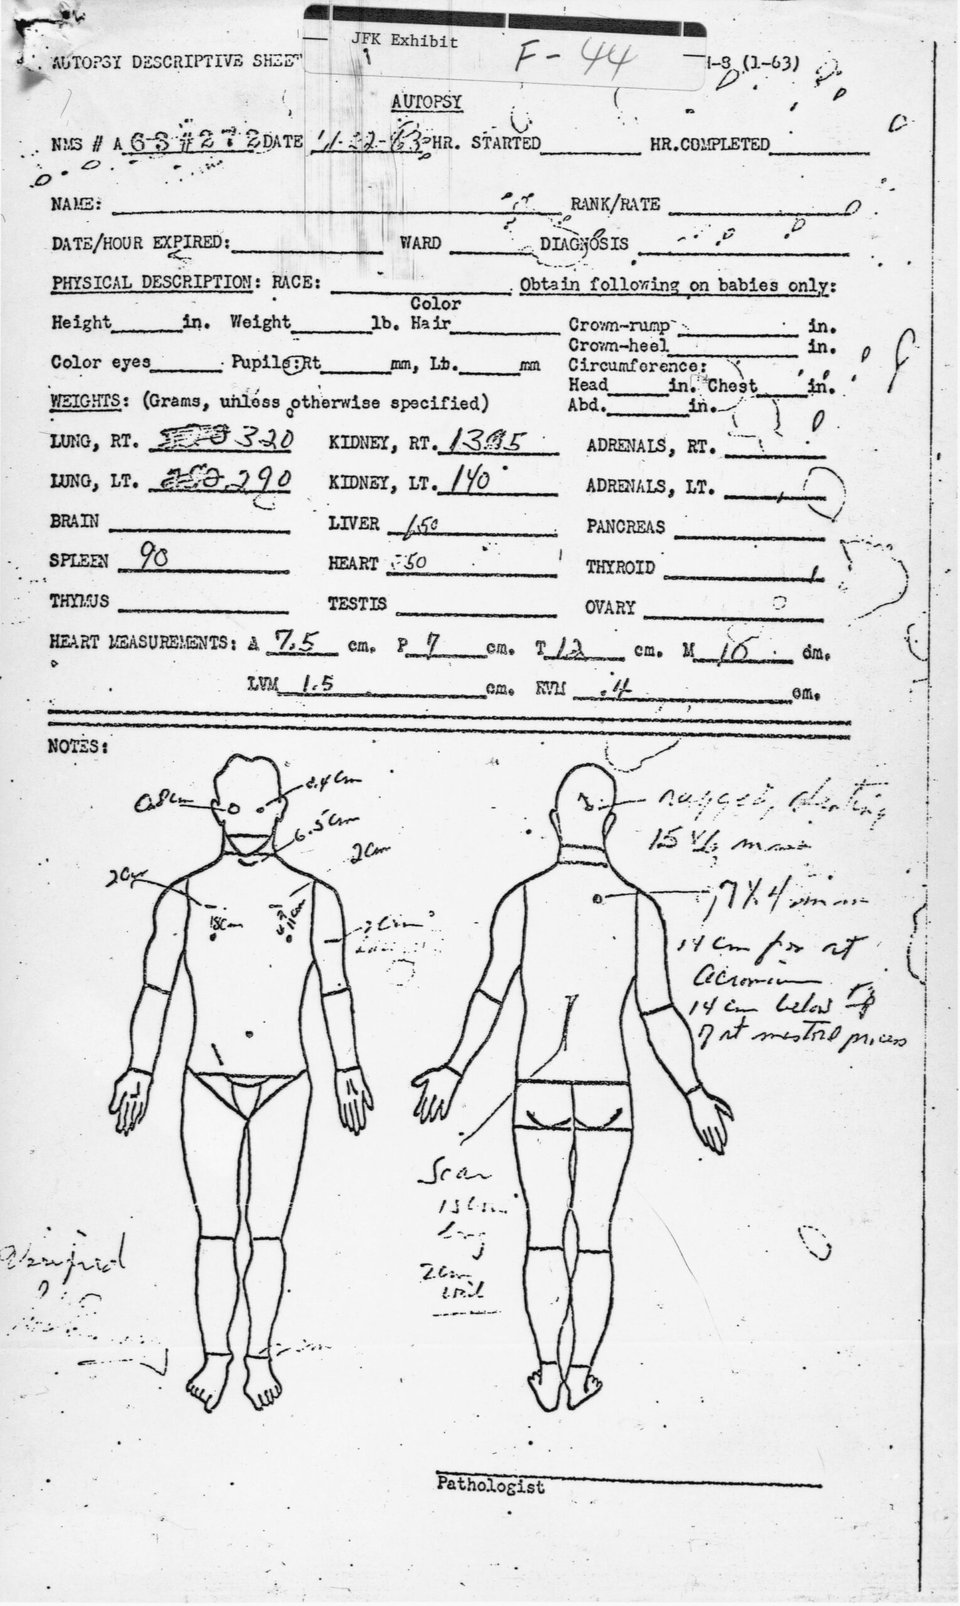 JFK Exhibit
F-44
AUTOPSY DESCRIPTIVE SHEET (1-63)
AUTOPSY
NMS # A 63 #272 DATE 11-22-63 HR. STARTED HR.COMPLETED
NAME: RANK/RATE
DATE/HOUR EXPIRED: WARD DIAGNOSIS
PHYSICAL DESCRIPTION: RACE: Obtain following on babies only:
Color
Height in. Weight lb. Hair Crown-rump in.
Crown-heel in.
Color eyes Pupils:Rt mm, Lb. mm Circumference:
Head in. Chest in.
WEIGHTS: (Grams, unless otherwise specified) Abd. in.
LUNG, RT. 320 KIDNEY, RT. ADRENALS, RT.
LUNG, LT. 290 KIDNEY, LT. 140 ADRENALS, LT.
BRAIN LIVER PANCREAS
SPLEEN 90 HEART THYROID
THYMUS TESTIS OVARY
HEART MEASUREMENTS: A 7.5 cm. P 7 cm. T 12 cm. M 10 dm.
LVM 1.5 cm. RVM .4 cm.
NOTES:
0.8cm
.4cm
6.5cm
2cm
2cm
2cm
ragged, slanting
15
7X4 mm
14 cm
acromium
14 cm below
Scar
long
2cm
Verified
Pathologist